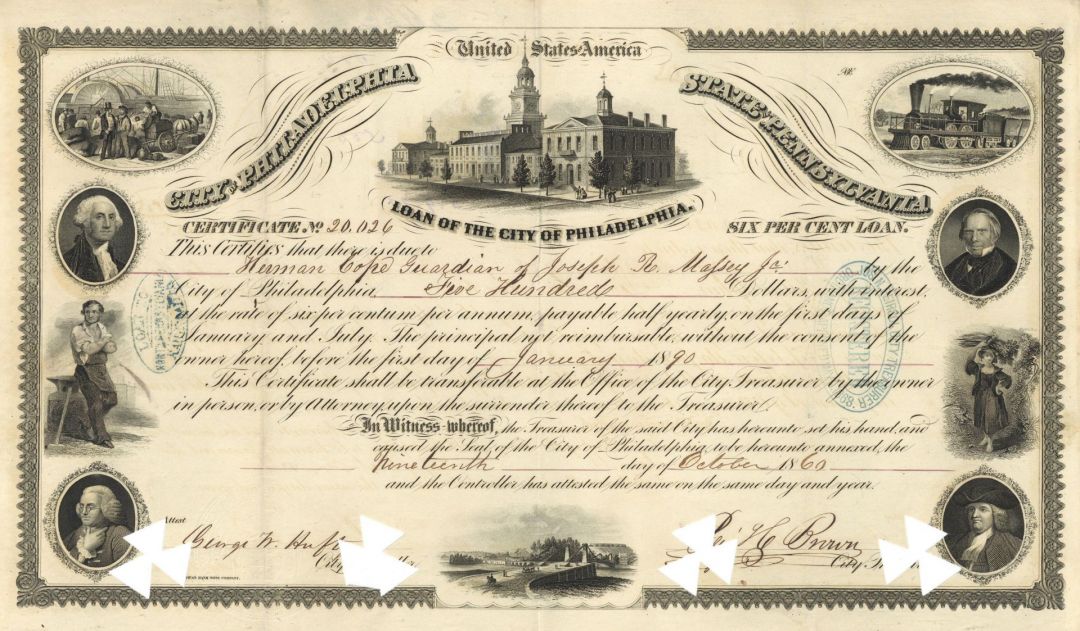 United States of America
CITY OF PHILADELPHIA
STATE OF PENNSYLVANIA
LOAN OF THE CITY OF PHILADELPHIA.
CERTIFICATE No 20,026
SIX PER CENT LOAN.
This Certifies that there is due to
Herman Cope Guardian of Joseph R. Massey Jr. by the
City of Philadelphia Five Hundred Dollars, with interest,
at the rate of six per centum per annum, payable half yearly, on the first days of
January and July. The principal not reimbursable, without the consent of the
owner hereof, before the first day of January 1890
This Certificate shall be transferable at the Office of the City Treasurer by the owner
in person, or by Attorney, upon the surrender thereof to the Treasurer.
In Witness whereof, the Treasurer of the said City has hereunto set his hand, and
caused the Seal of the City of Philadelphia, to be hereunto annexed, the
nineteenth day of October 1860
and the Controller has attested the same on the same day and year.
Attest
George W. Huft
H. Brown
City
BANK NOTE COMPANY.